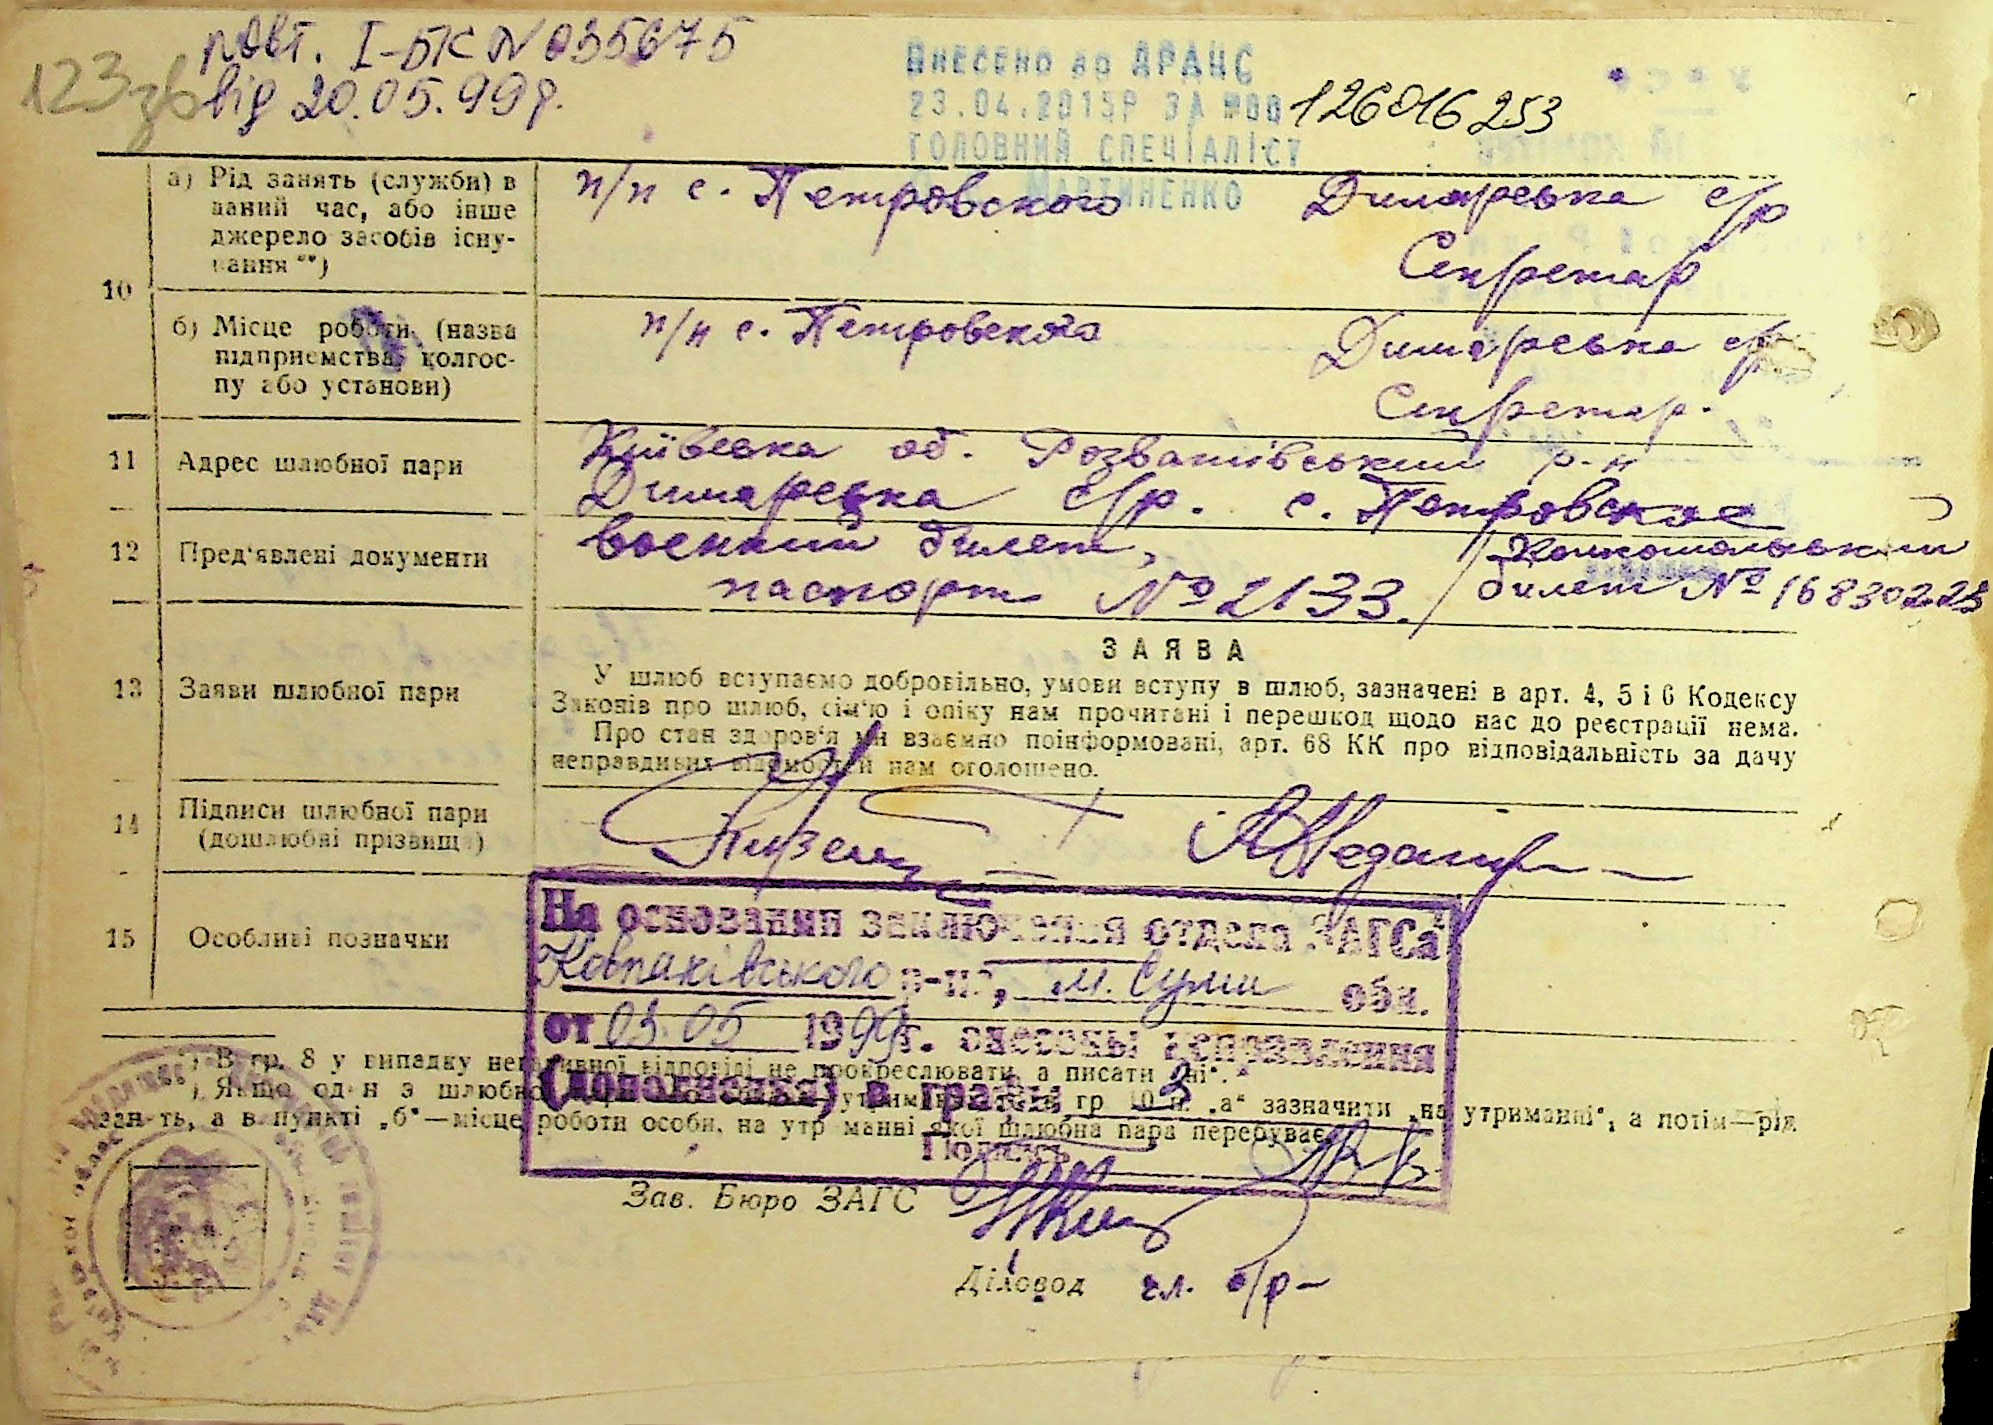 повт. I-БК N 035675
123 зв від 20.05.99р.
Внесено до ДРАЦС
23.04.2015Р ЗА №00126016253
ГОЛОВНИЙ СПЕЦІАЛІСТ
МАРТИНЕНКО
10
а) Рід занять (служби) в
даний час, або інше
джерело засобів існу-
вання **)
п/п с. Петровского
Димарська с/р
Секретар
б) Місце роботи (назва
підприємства, колгос-
пу або установи)
п/п с. Петровского
Димарська с/р
Секретар.
11 Адрес шлюбної пари
Київська об. Розважівський р-н
Димарська с/р. с. Петровское
12 Пред'явлені документи
военний билет, паспорт № 2133.
Комсомольський билет № 16830223
13 Заяви шлюбної пари
ЗАЯВА
У шлюб вступаємо добровільно, умови вступу в шлюб, зазначені в арт. 4, 5 і 6 Кодексу
Законів про шлюб, сім'ю і опіку нам прочитані і перешкод щодо нас до реєстрації нема.
Про стан здоров'я ми взаємно поінформовані, арт. 68 КК про відповідальність за дачу
неправдивих відомостей нам оголошено.
14 Підписи шлюбної пари
(дошлюбні прізвища)
15 Особливі позначки
На основании заключения отдела ЗАГСа
Ковпаківського р-на, м. Суми обл.
от 03.05 1999г. внесены исправления
(дополнения) в графы 3
Подпись
*) В гр. 8 у випадку негативної відповіді не прокреслювати, а писати „ні“.
Якщо один з шлюбної утриманні гр 10 п. „а“ зазначити „на утриманні“, а потім—рід
занять, а в пункті „б“—місце роботи особи, на утриманні якої шлюбна пара перебуває.
Зав. Бюро ЗАГС
Діловод гл. б/р-